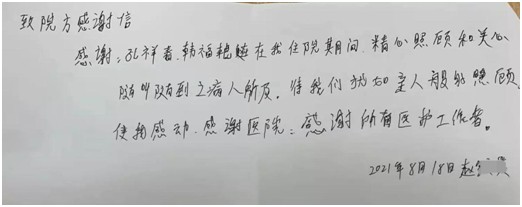 致院方感谢信
感谢:孔祥春、韩福艳在我住院其间精心照顾和关心
随叫随到之病人所及。待我们犹如亲人般的照顾
使我感动、感谢医院:感谢所有医护工作者。
2021年8月18日 赵